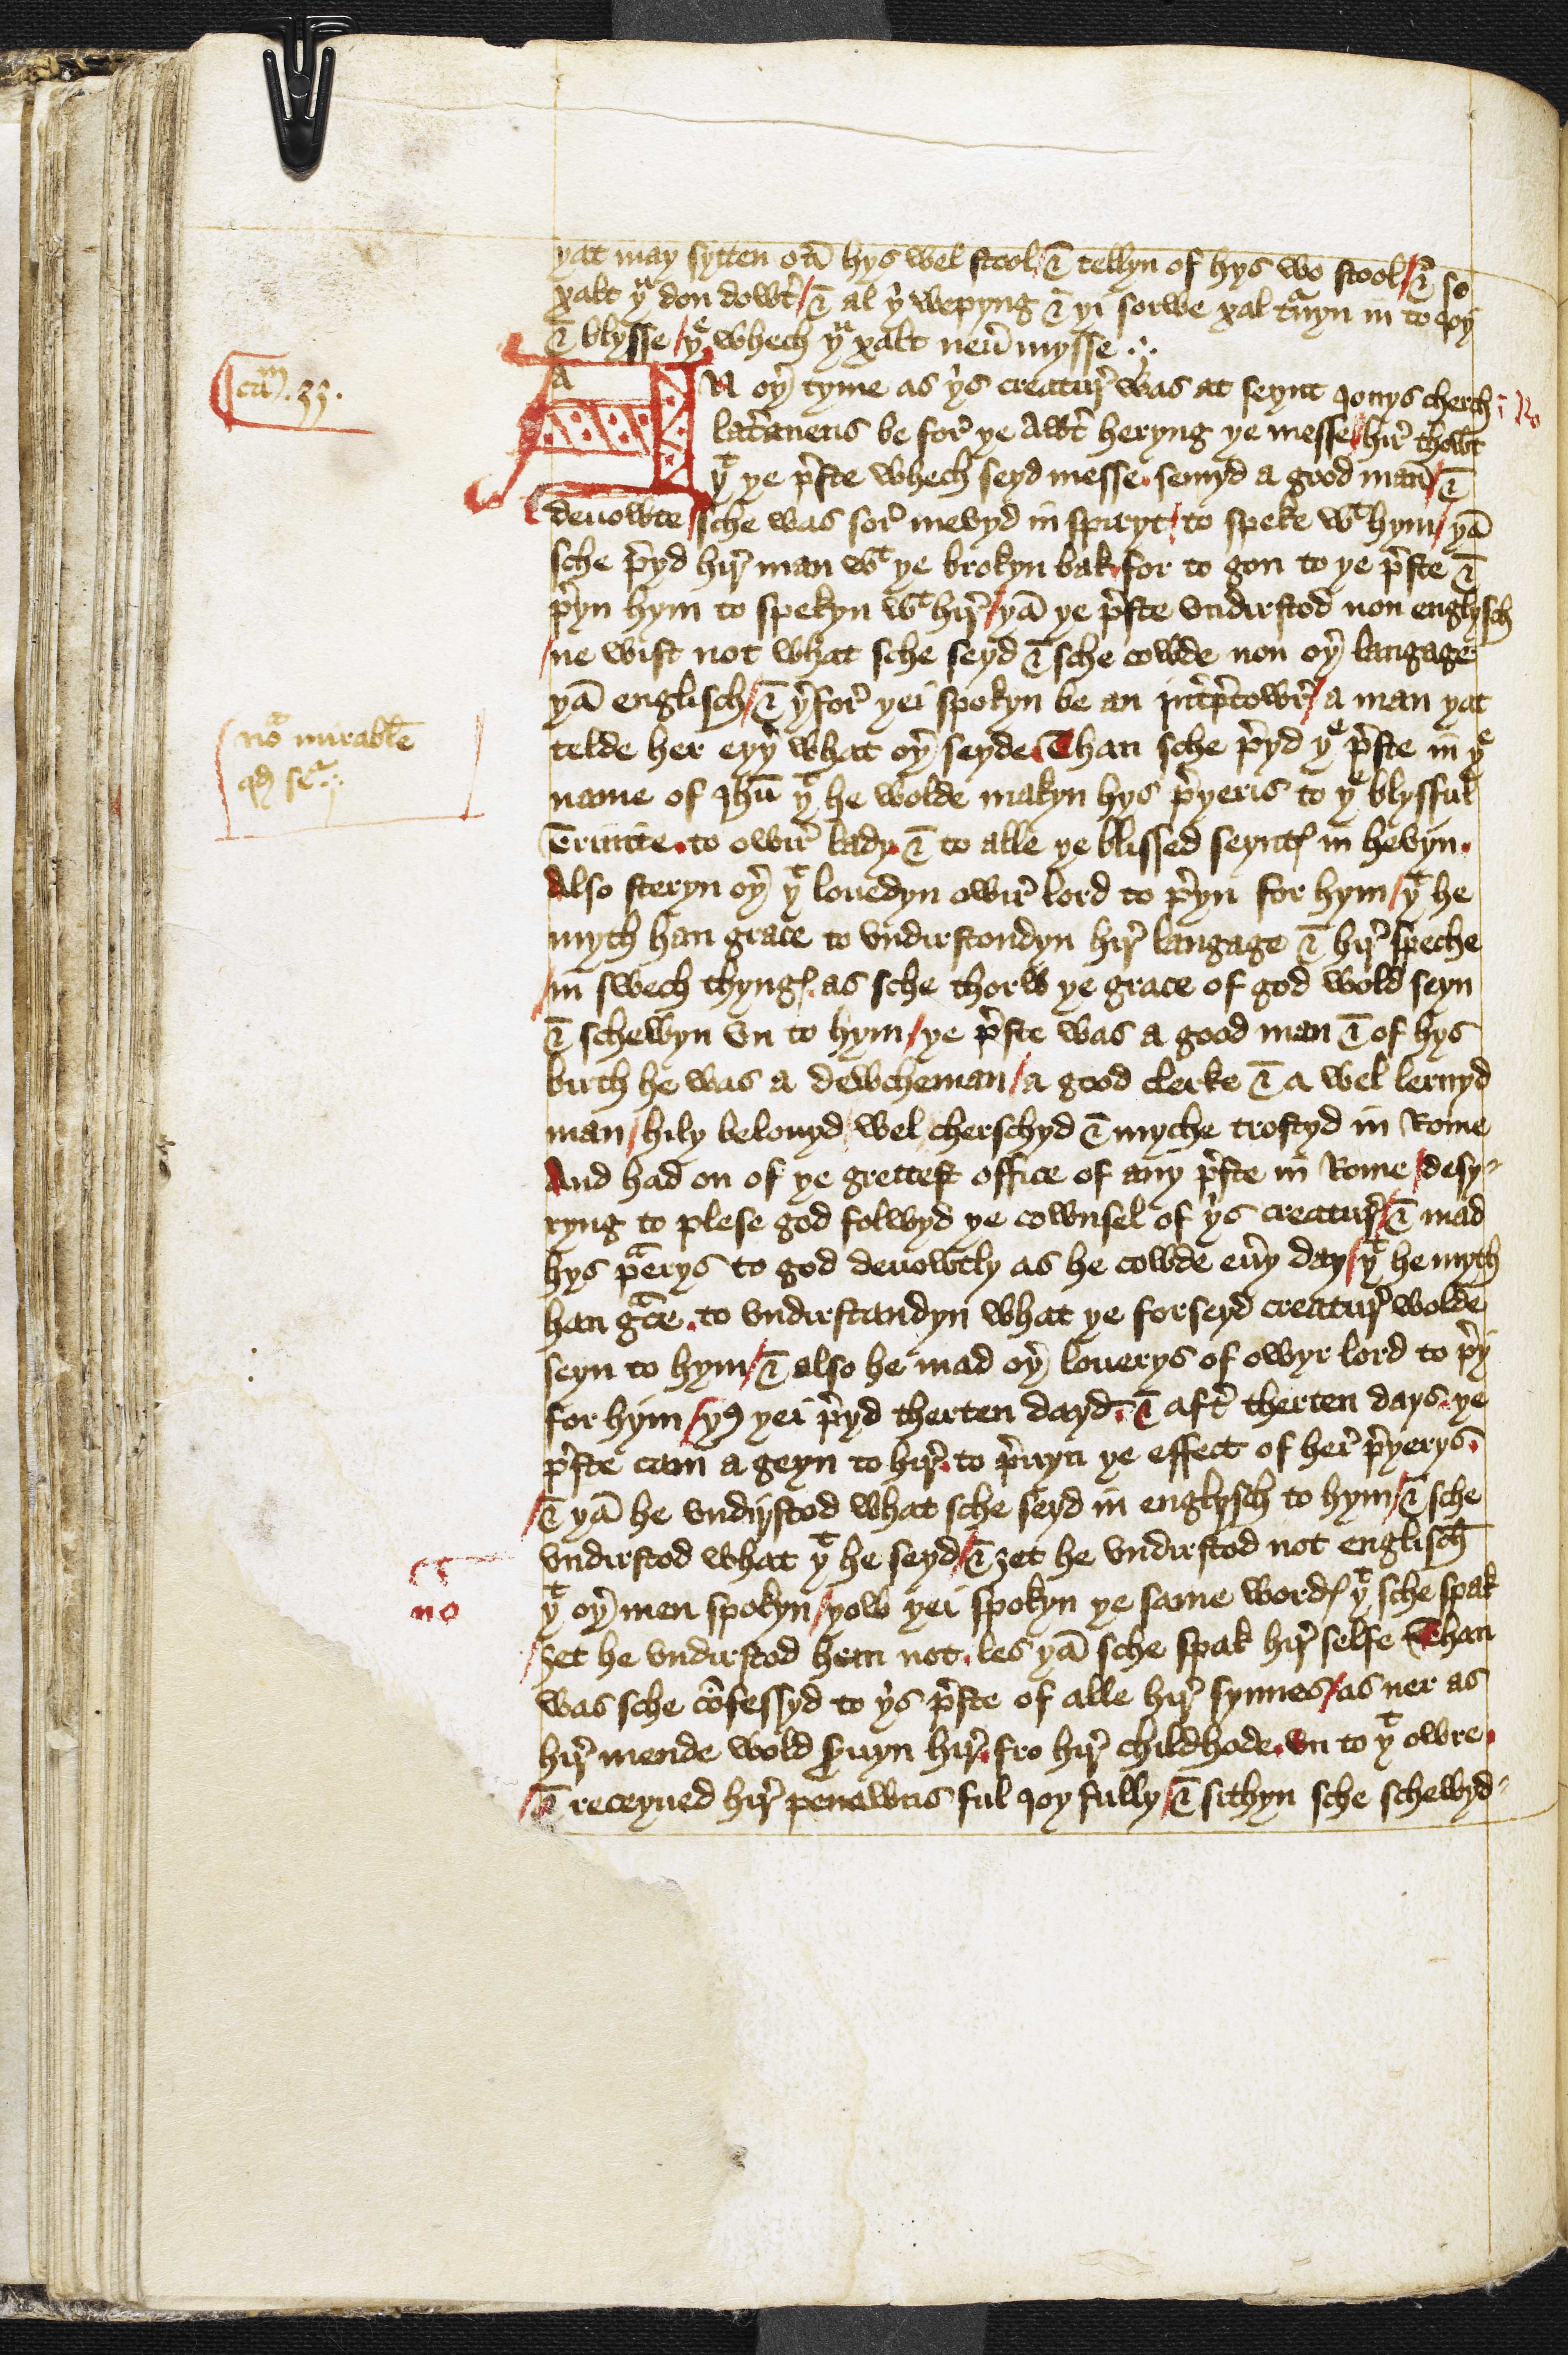 yat may sytten on̄ hys wel stool / & tellyn of hys wo stool / & so
xalt yu don dowtr̛ / & al yi wepyng & yi sorwe xal turyn in to joy
& blysse / ye whech yu xalt neuer mysse
cam . 33 .
AN oyr tyme as yis creatur was at seynt Jonys cherch
i Ro
lateranens be for ye Awter heryng ye messe / hir thowt
yt ye preste whech seyd messe . semyd a good man / &
deuowte / sche was sor mevyd in spiryt / to speke wt hym / yā
sche preyd hir man wt ye brokyn bak for to gon to ye preste &
preyn hym to spekyn wt hir / yā ye preste vndirstod non englysch
/ ne wist not what sche seyd & sche cowde non oyr langage
yā englisch / & yerfor yei spokyn be an interpretowr / a man yat
telde her eyyr what oyr seyde . Than sche preyd ye preste in ye
nōa mirabile
qd sca
name of Jhū yt he wolde makyn hys preyeris to ye blysful
Trinite . to owir lady . & to alle ye blissed seyntes in hevyn .
Also steryn oyr yt louedyn owir lord to preyn for hym / yt he
myth han grace to vndirstondyn hir langage & hir speche
/ in swech thynges . as sche thorw ye grace of god wold seyn
& schewyn vn to hym / ye preste was a good man & of hys
birth he was a dewcheman / a good clerke & a wel lernyd
man / hily belouyd / wel cherschyd & myche trostyd in Rome
And had on of ye grettest office of any preste in Rome / desy-
ryng to plese god folwyd ye cownsel of yis creatur / & mad
hys praerys to god deuowtly as he cowde euery day / yt he myth
han grace . to vndirstandyn what ye forseyd creatur wolde
seyn to hym / & also he mad oyr louerys of owyr lord to prey
for hym / yus yei preyd therten dayd . & aftr therten days . ye
preste cam a geyn to hir . to preuyn ye effect of her preyerys .
/ & yā he vndirstod what sche seyd in englysch to hym / & sche
vndirstod what yt he seyd / & ȝet he vndirstod not englisch
no
yt oyr men spokyn / yow yei spokyn ye same wordes yt sche spak
/ ȝet he vndirstod hem not . les yā sche spak hir selfe Than
was sche cōfessyd to yis preste of alle hir synnes / as ner as
hir mende wold seruyn hir . fro hir childhode . vn to yt owre .
/ & receyued hir penawns ful joyfully / & sithyn sche schewyd-